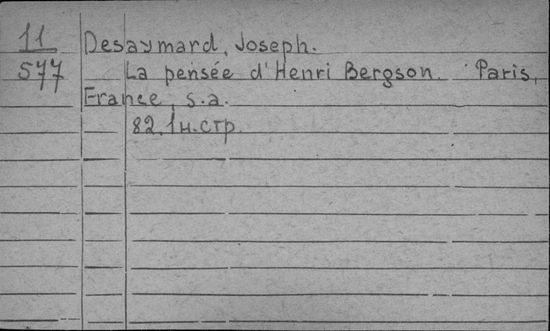 11
577
Desaymard, Joseph.
La pensée d'Henri Bergson. Paris,
France, s.a.
82, 1 н. стр.